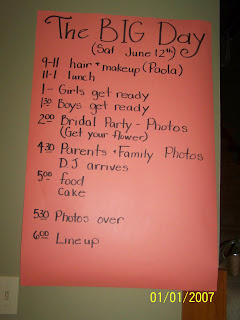 The BIG Day
(Sat June 12th)
9-11 hair + makeup (Paola)
11-1 lunch
1 - Girls get ready
1 30 Boys get ready
2 00 Bridal Party - Photos
(Get your flower)
4 30 Parents + Family Photos
DJ arrives
5 00 food
Cake
5 30 Photos over
6 00 Line up
01/01/2007